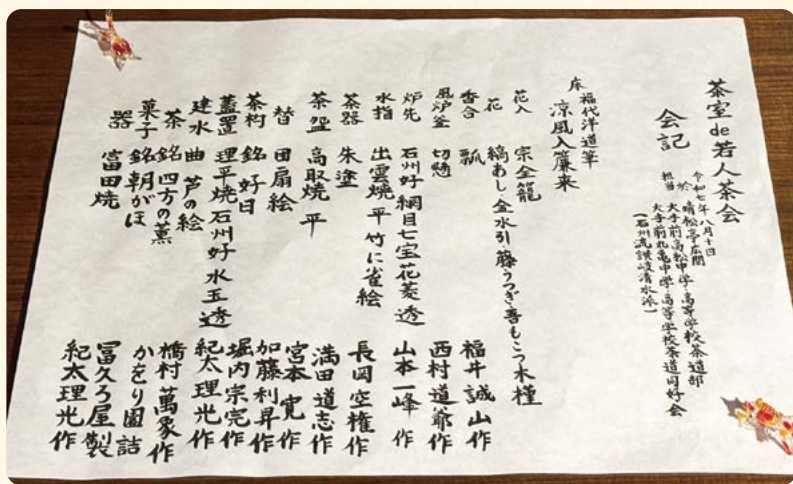 茶室de若人茶会
会記
令和七年八月十日
於 晴松亭広間
担当 大手前高松中学・高等学校茶道部
大手前丸亀中学・高等学校茶道同好会
(石州流讃岐清水派)
床 福代洋道筆
涼風入簾来
花入 宗全籠
花 縞あし・金水引・藤うつぎ・喜もこつ木槿
香合 瓢 福井誠山作
風炉釜 切懸 西村道爺作
炉先 石州好 網目七宝花菱透 山本一峰 作
水指 出雲焼 平 竹に雀絵 長岡空権作
茶器 朱塗 満田道志作
茶盌 高取焼 平 宮本 寛作
替 団扇絵 加藤利昇作
茶杓 銘 好日 堀内宗完作
蓋置 理平焼 石州好 水玉透 紀太理光作
建水 曲 芦の絵 橋村萬象作
茶 銘 四方の薫 かをり園詰
菓子 銘 朝がほ 冨久ろ屋製
器 富田焼 紀太理光作